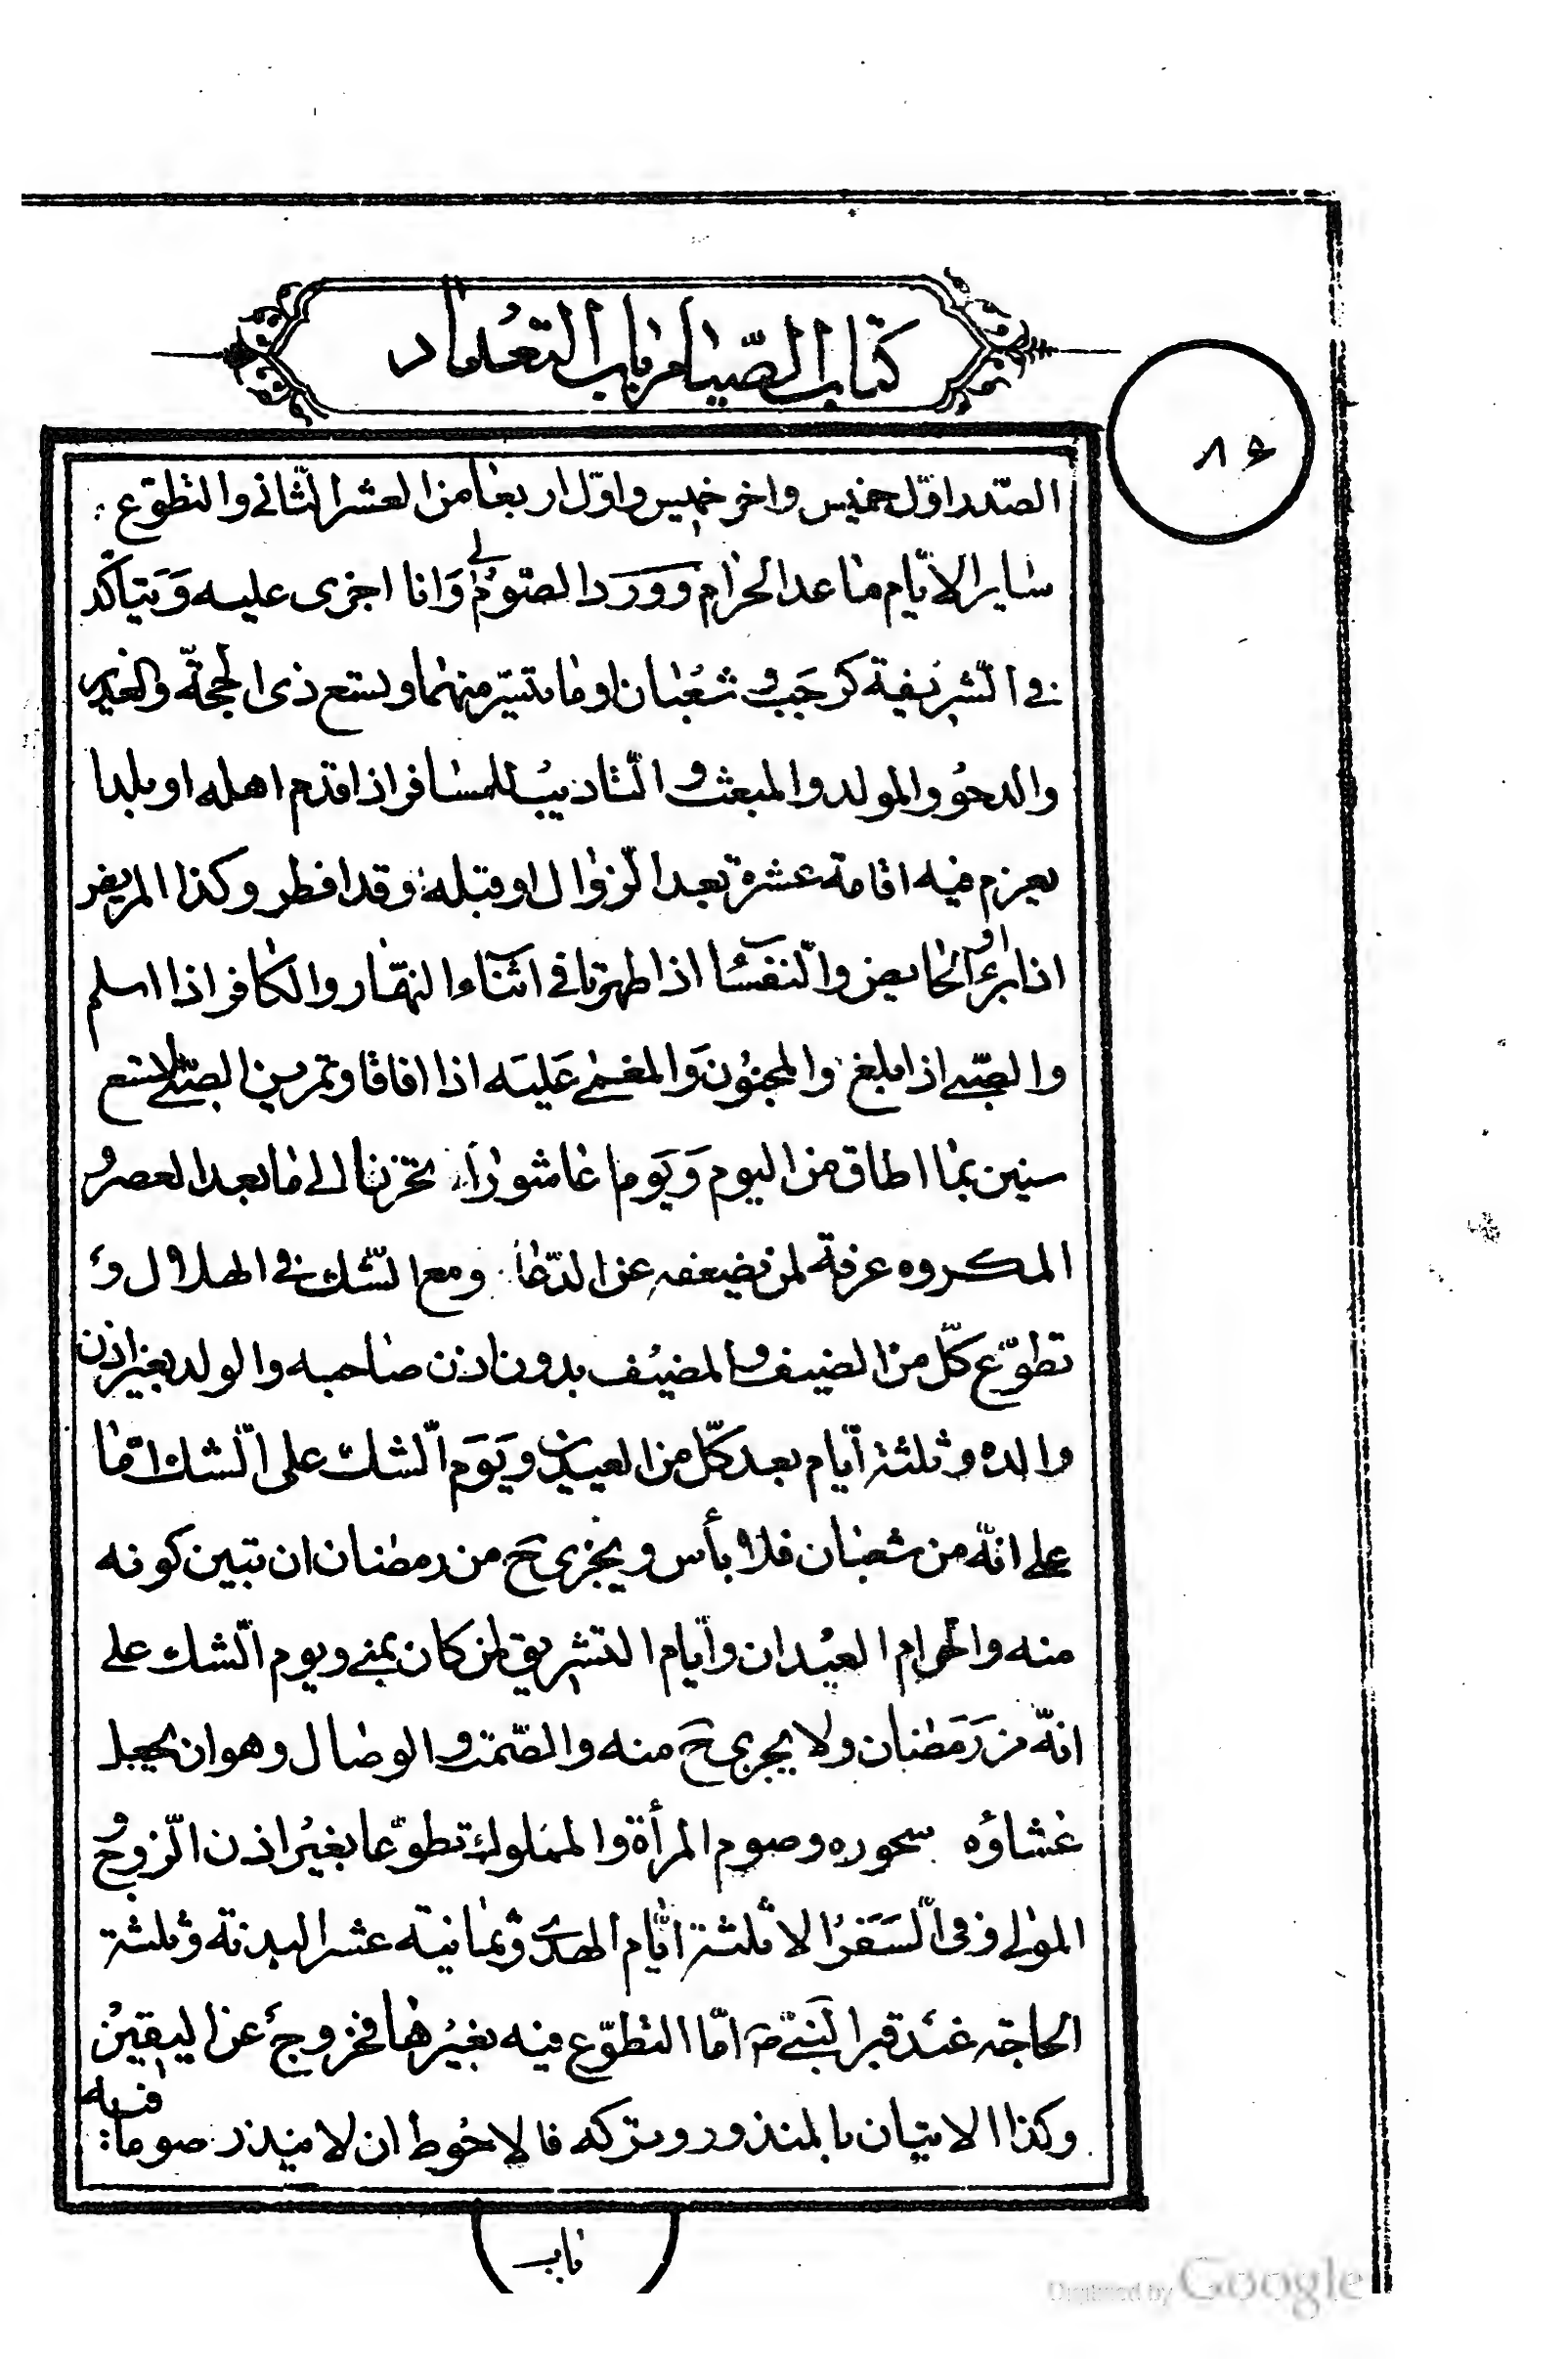 كتاب الصّيام باب التعداد
٨٤
الصّدر اوّل خميس واخر خميس واوّل اربعا من العشر الثانى والتطوّع
ساير الايّام ما عدا الحرام وورد الصّوم لى وانا اجزى عليه ويتأكّد
فى الشريفة كرجب وشعبان او ما تيسّر منهما وتسع ذى الحجّة والغدير
والدحو والمولد والمبعث والتاديب للمسافر اذا قدم اهله او بلدا
يعزم فيه اقامة عشرة بعد الزوال او قبله وقد افطر وكذا المريض
اذا برء او الحايض والنفسا اذا طهرتا فى اثناء النهار والكافر اذا اسلم
والصّبى اذا بلغ والمجنون والمغمى عليه اذا افاقا وتمرين الصّبى لتسع
سنين بما اطاق من اليوم ويوم عاشورا تحزنا الى ما بعد العصر و
المكروه عرفة لمن يضعفه عن الدّعا ومع الشّك فى الهلال و
تطوّع كلّ من الضيف والمضيف بدون اذن صاحبه والولد بغير اذن
والده وثلثة ايّام بعد كلّ من العيدين ويوم الشّك على الشك امّا
على انّه من شعبان فلا بأس ويجزى ح من رمضان ان تبين كونه
منه والحرام العيدان وايّام التشريق لمن كان بمنى ويوم الشّك على
انّه من رمضان ولا يجزى ح منه والصّمت والوصال وهو ان يجعل
عشاؤه سحوره وصوم المرأة والمملوك تطوّعا بغير اذن الزوج و
المولى وفى السّفر الا ثلثة ايّام الهدى وثمانية عشر البدنة وثلثة
الحاجة عند قبر النّبى ص امّا التطوّع فيه بغيرها فخروج عن اليقين
وكذا الاتيان بالمنذور وتركه فالاحوط ان لا ينذر صوما فيه
باب
Digitized by Google